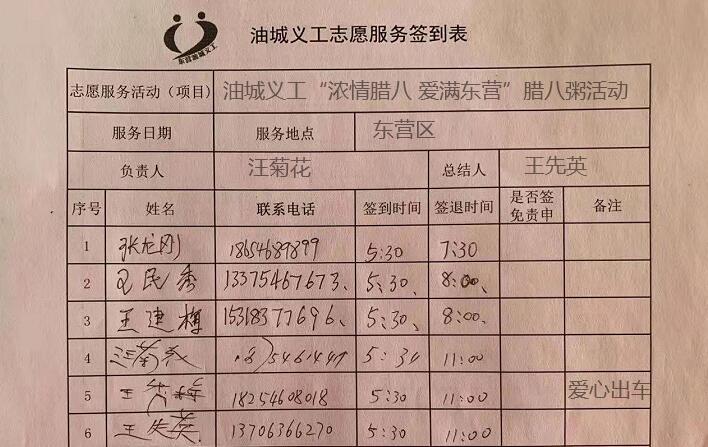 东营油城义工
油城义工志愿服务签到表
志愿服务活动（项目） 油城义工“浓情腊八 爱满东营”腊八粥活动
服务日期 服务地点 东营区
负责人 汪菊花 总结人 王先英
序号 姓名 联系电话 签到时间 签退时间 是否签免责申 备注
1 张龙刚 18654689899 5:30 7:30
2 王民秀 13375467673、 5:30、 8:00、
3 王建梅 15318377696、 5:30、 8:00、
4 汪菊花 5:34 11:00
5 王 18254608018 5:30 11:00 爱心出车
6 王先英 13706366270 5:30 11:00